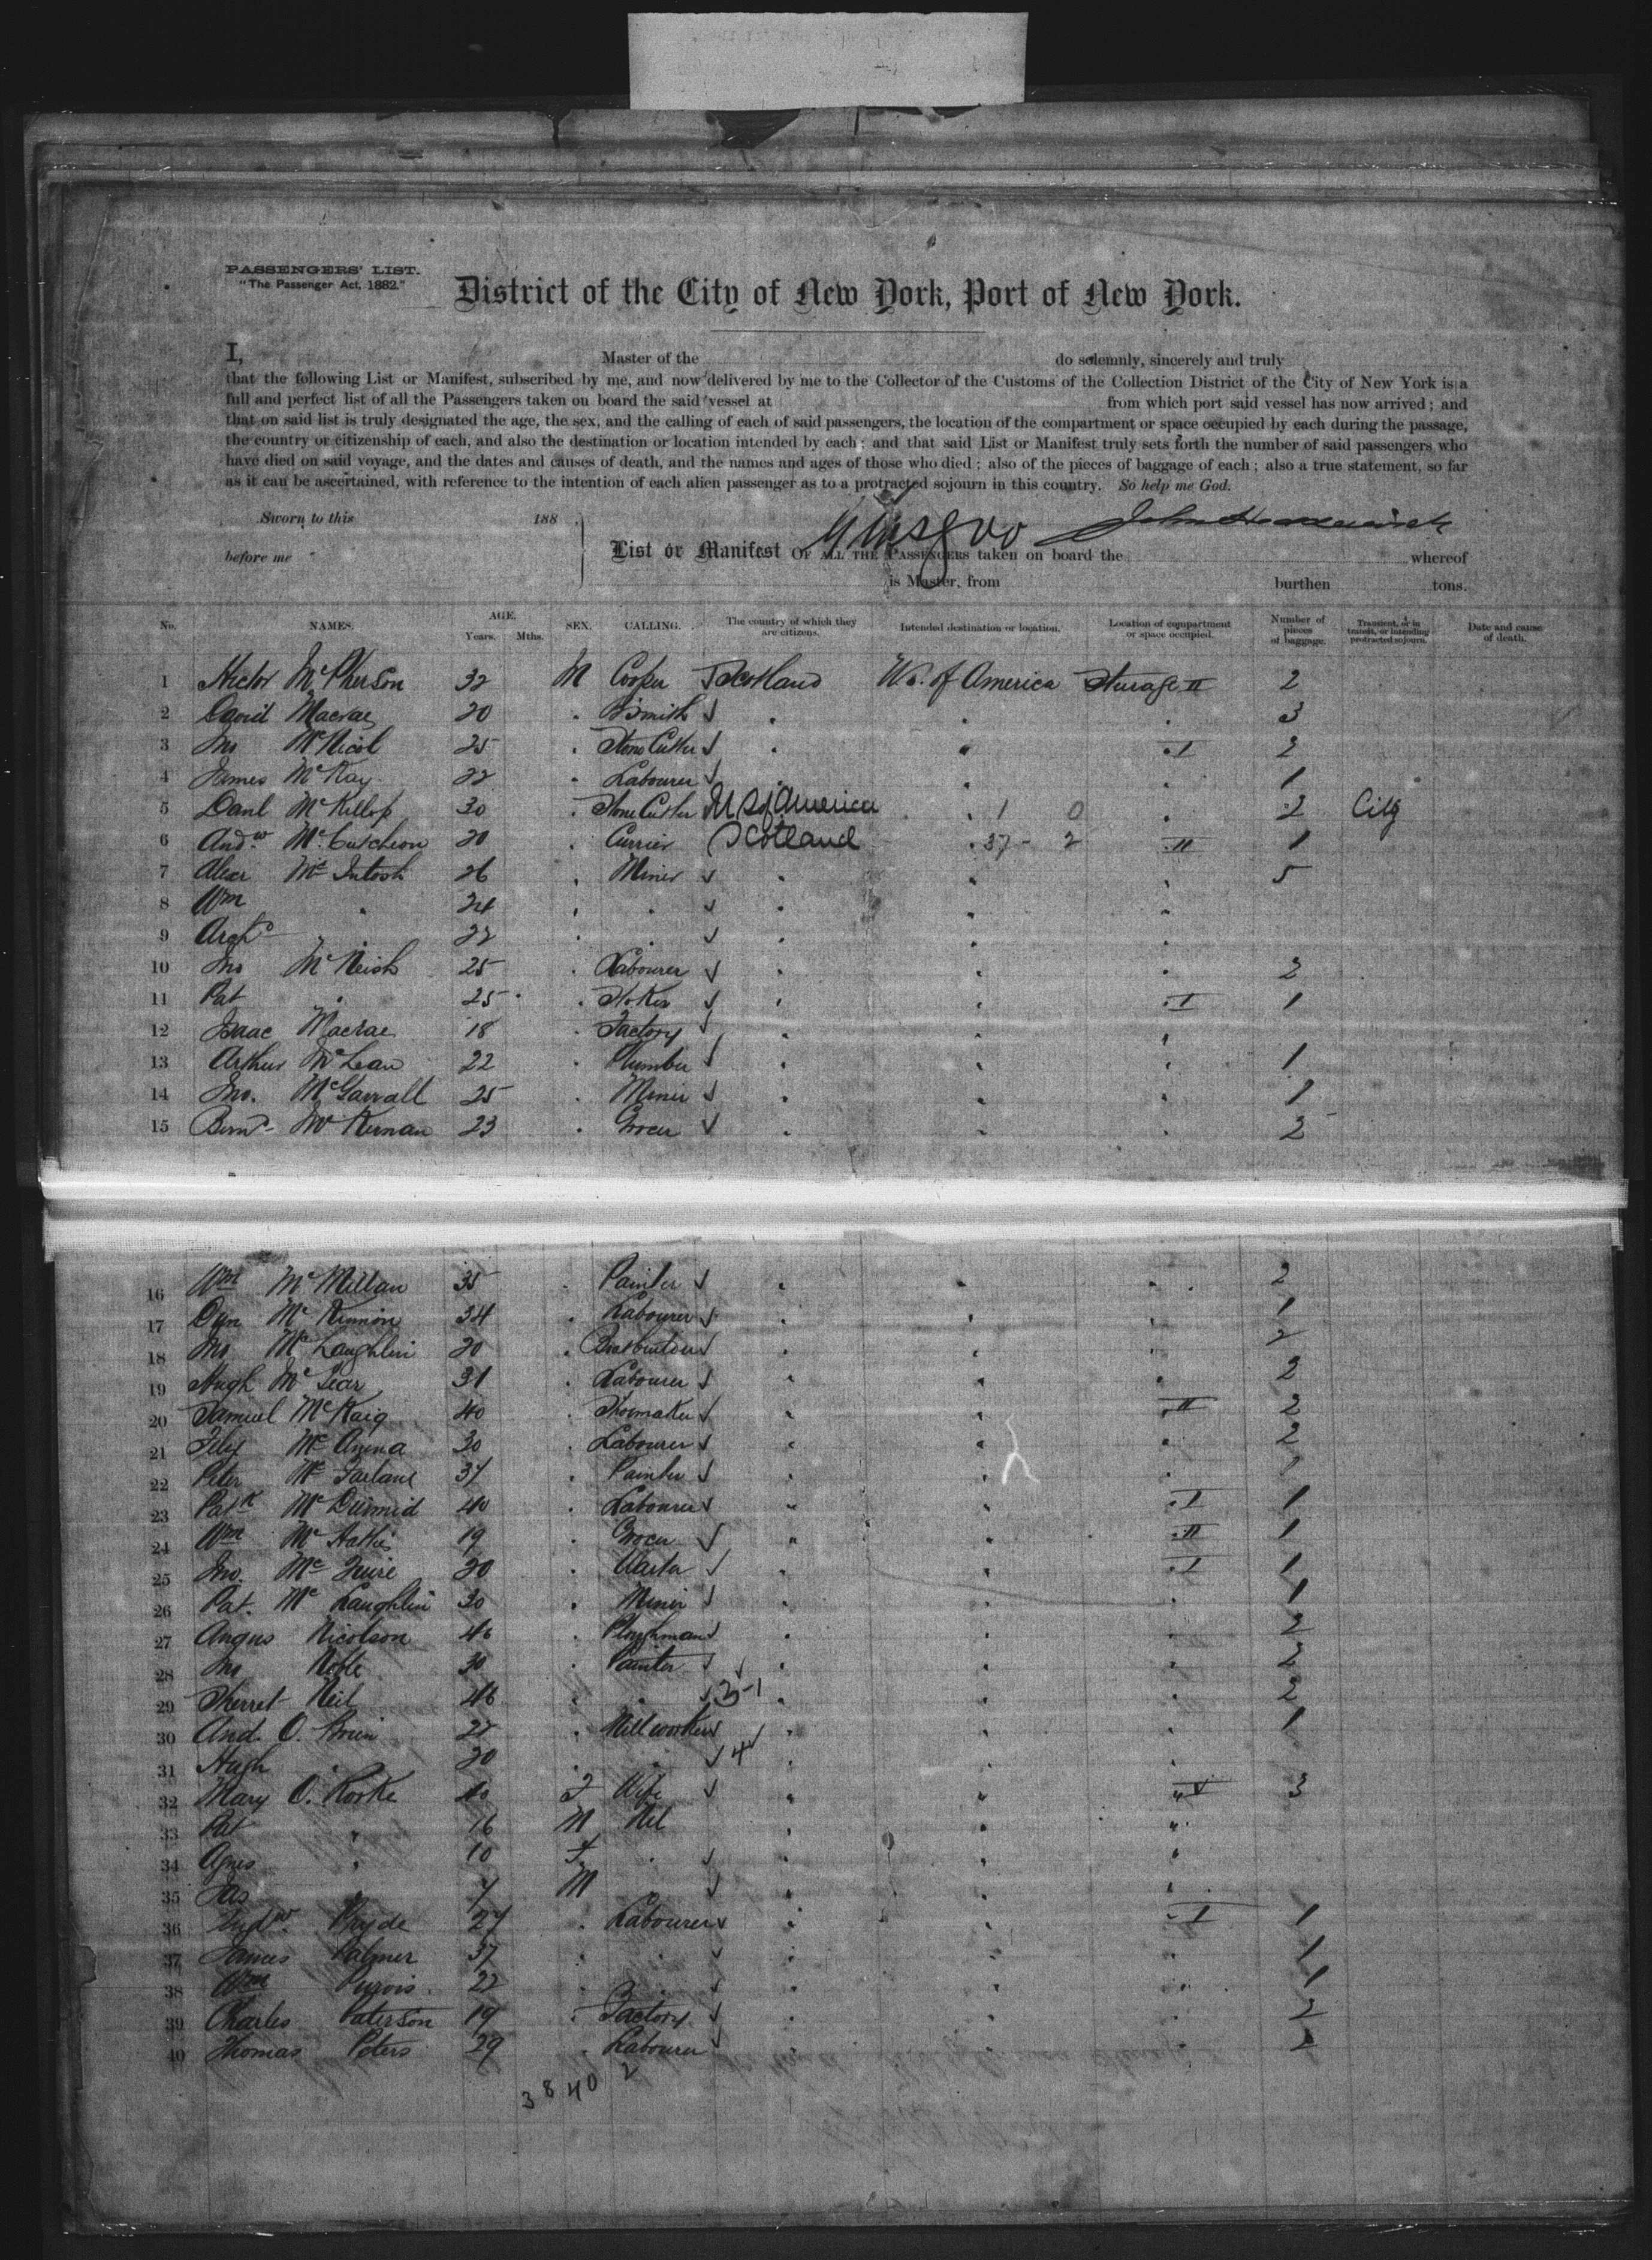 PASSENGERS' LIST.
"The Passenger Act, 1882."
District of the City of New York, Port of New York.
I, Master of the do solemnly, sincerely and truly
that the following List or Manifest, subscribed by me, and now delivered by me to the Collector of the Customs of the Collection District of the City of New York is a
full and perfect list of all the Passengers taken on board the said vessel at from which port said vessel has now arrived; and
that on said list is truly designated the age, the sex, and the calling of each of said passengers, the location of the compartment or space occupied by each during the passage,
the country or citizenship of each, and also the destination or location intended by each; and that said List or Manifest truly sets forth the number of said passengers who
have died on said voyage, and the dates and causes of death, and the names and ages of those who died; also of the pieces of baggage of each; also a true statement, so far
as it can be ascertained, with reference to the intention of each alien passenger as to a protracted sojourn in this country. So help me God.
Sworn to this 188
before me
Glasgow John
List or Manifest OF ALL THE PASSENGERS taken on board the whereof
is Master, from burthen tons.
No. NAMES. AGE. Years. Mths. SEX. CALLING. The country of which they are citizens. Intended destination or location. Location of compartment or space occupied. Number of pieces of baggage. Transient, or in transit, or intending protracted sojourn. Date and cause of death.
1 Hector McPherson 32 M Cooper Scotland U.S. of America Sturage II 2
2 David Macrae 20 . Bsmith √ . . . 3
3 Jno McNicol 25 . Stone Cutter √ . . . I 2
4 James McKay 22 . Labourer √ . . . 1
5 Danl McKillop 30 . Stone Cutter U S of America . 1 0 . 2 City
6 Andw McCutcheon 20 . Currier Scotland . 37 - 2 . II 1
7 Alexr McIntosh 26 . Miner √ . . . 5
8 Wm . 24 . . √ . . .
9 Archd . 22 . . √ . . .
10 Jno McNeish 25 . Labourer √ . . . 2
11 Pat . 25 . Stoker √ . . . I 1
12 Isaac Macrae 18 . Factory √ . . .
13 Arthur McLean 22 . Plumber √ . . . 1
14 Jno. McGarvall 25 . Miner √ . . . 1
15 Bernd McKernan 23 . Grocer √ . . . 2
16 Wm McMillan 35 . Painter √ . . . 2
17 Dun McKinnon 34 . Labourer √ . . . 1
18 Jno McLaughlin 20 . √ . . . 2
19 Hugh McGear 31 . Labourer √ . . . 2
20 Samuel McKaig 40 . Shoemaker √ . . . II 2
21 Felix McAnna 30 . Labourer √ . . . 2
22 Peter McFarlane 37 . Painter √ . . . 1
23 Patk McDiarmid 40 . Labourer √ . . . I 1
24 Wm McHattie 19 . Grocer √ . . . II 1
25 Jno. McGuire 20 . Waiter √ . . . I 1
26 Pat. McLaughlin 30 . Miner √ . . . 1
27 Angus Nicolson 46 . Ploughman √ . . . 2
28 Jno Noble 30 . Painter √ . . . 2
29 Sherret Neil 46 . . √ 3-1 . . . 2
30 And. O. Brien 22 . Millworker √ . . . 1
31 Hugh . 20 . . √ 4 . . .
32 Mary O. Rorke 40 F Wife √ . . . V 3
33 Pat . 16 M Nil . . .
34 Agnes . 10 F . √ . . .
35 Jas . 7 M . √ . . .
36 Andw. Pryde 27 . Labourer √ . . . I 1
37 James Palmer 37 . . √ . . . 1
38 Wm Purvis 22 . . √ . . . 1
39 Charles Paterson 19 . Factory √ . . . 2
40 Thomas Peters 29 . Labourer √ . . . 2
3 8 40 2